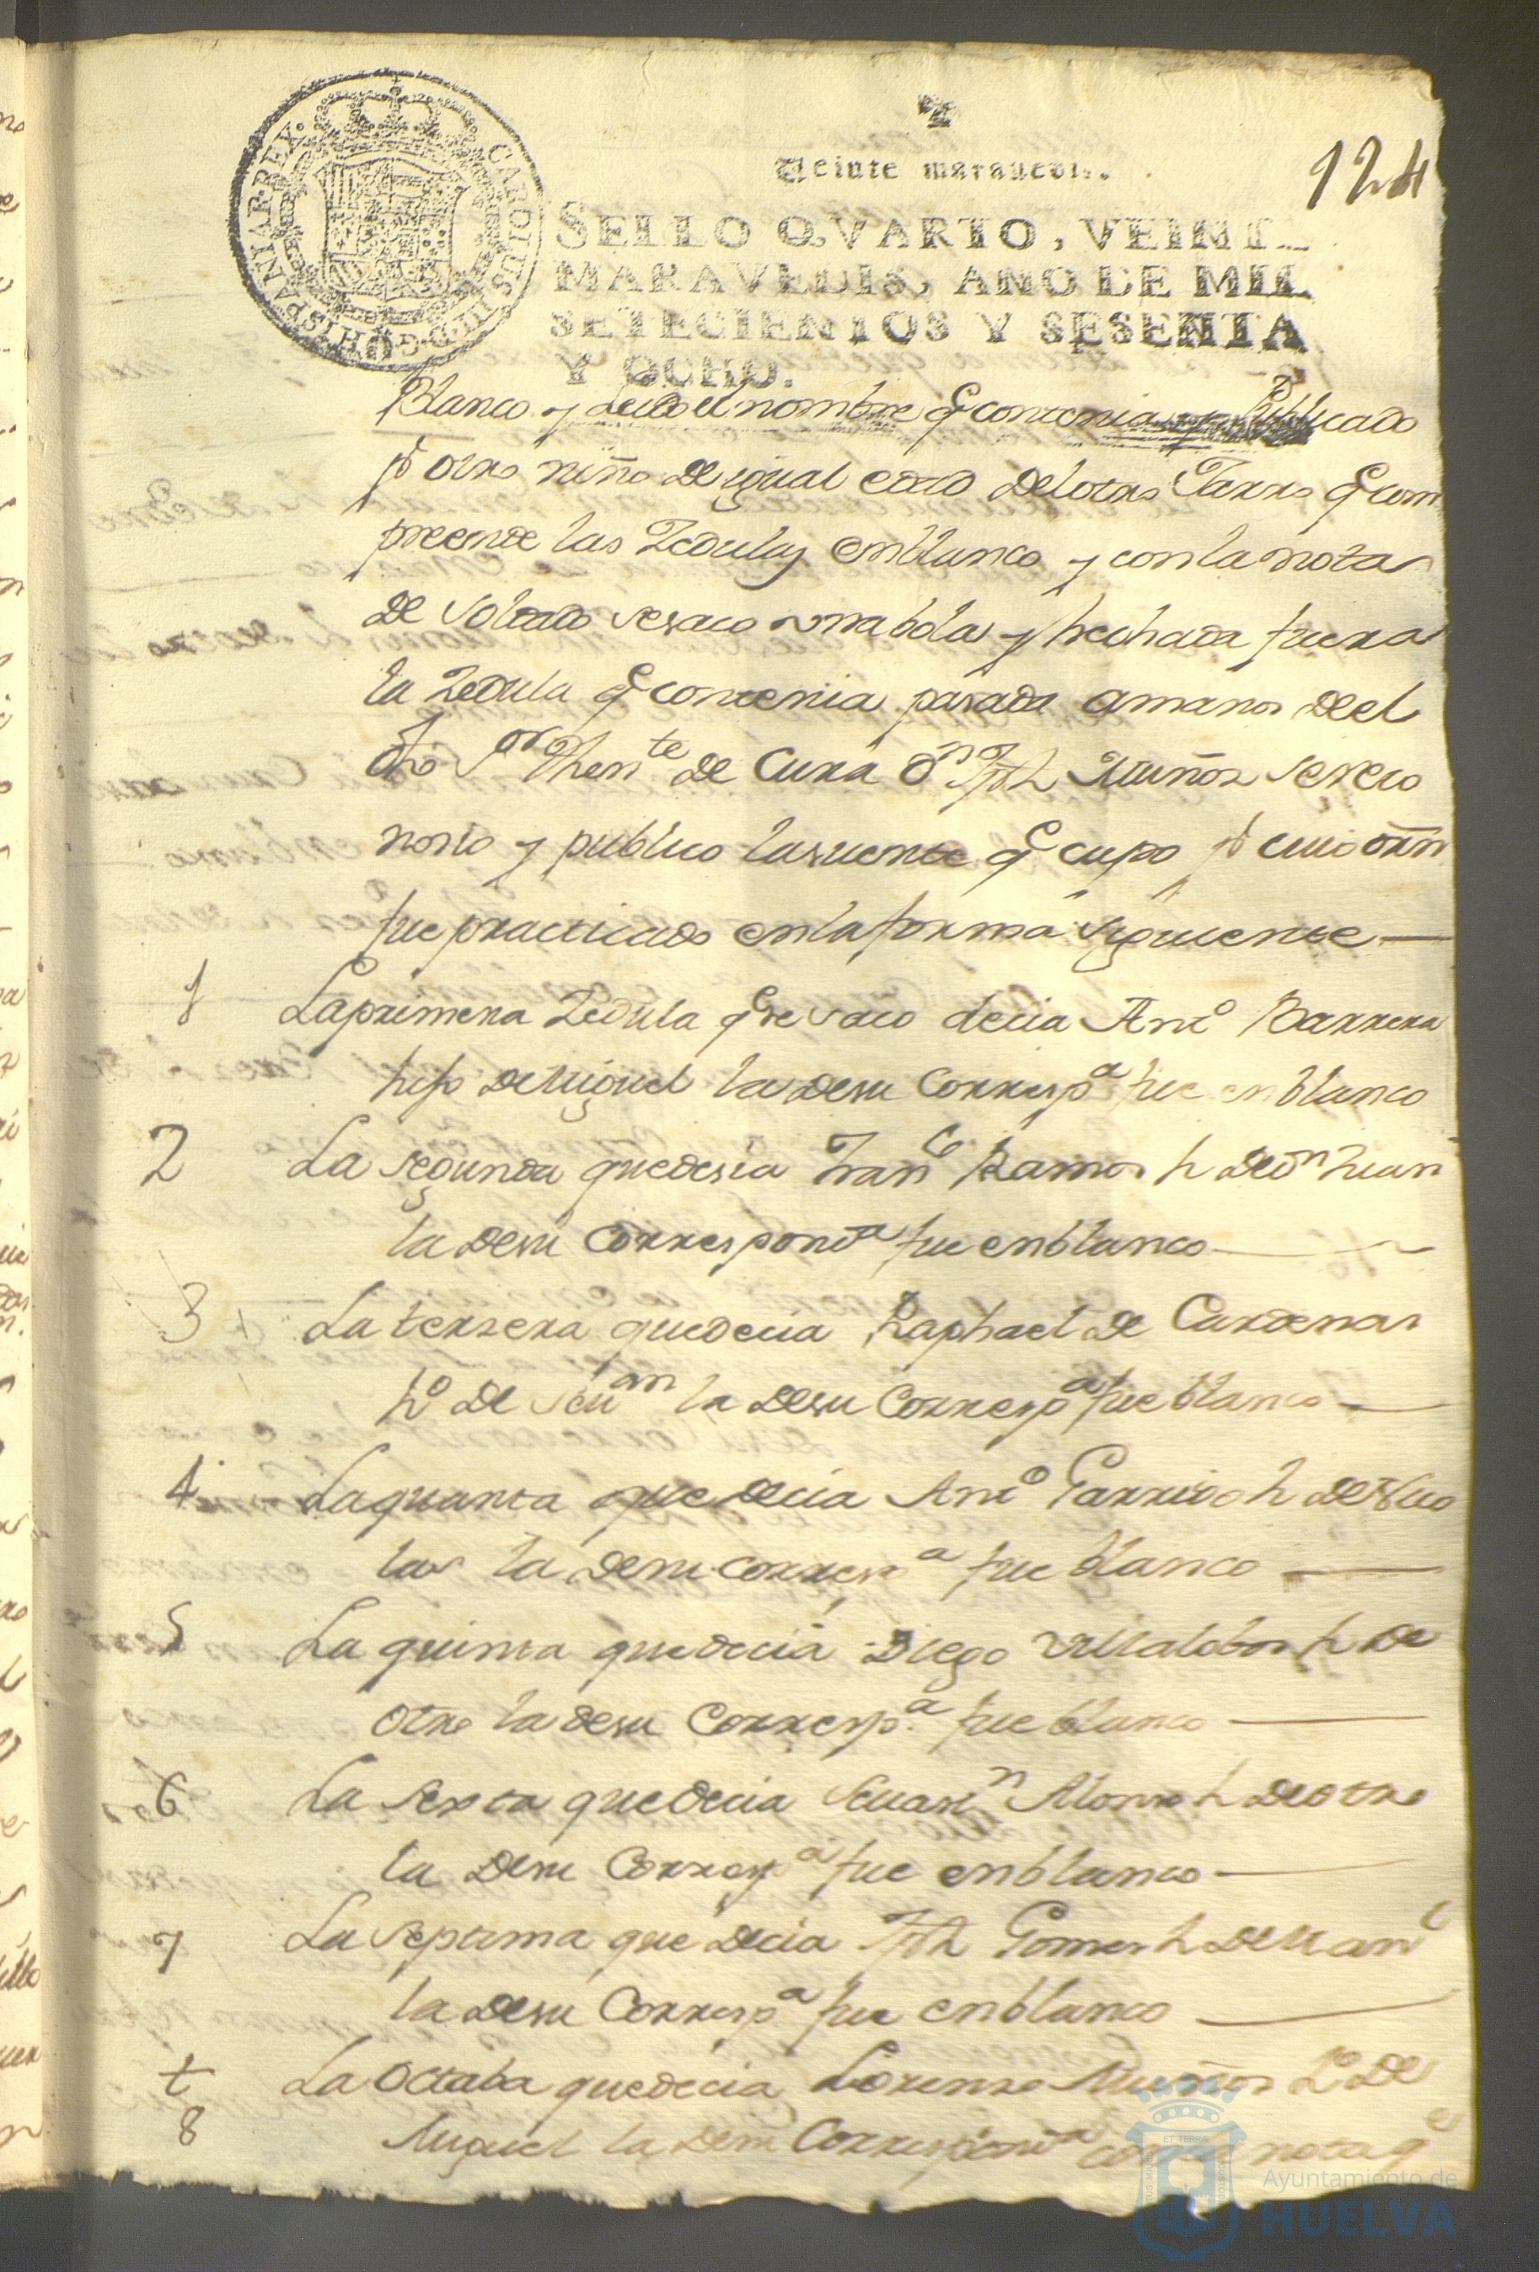 124
Veinte maravedis.
SELLO QVARTO, VEINT
MARAVEDIS, AÑO DE MIL
SETECIENTOS Y SESENTA
Y OCHO.
CAROLUS III D G HISPANIAR REX
Blanco y Leido el nombre q contenia Publicado
pr otro niño de igual edad del otro Jarro q com
preende las Zedulas en blanco y con la nota
de Soldado se saco una bola y hechada fuera
la Zedula q contenia pasada a manos de el
dho Sor Thente de Cura Dn Jph Muñoz se reco
nosio y publico la suerte q cupo pr cuio orn
fue practicado en la forma siguiente
1 La primera Zedula q se saco decia Anto Barrera
hijo de Miguel la de su Correspa fue en blanco
2 La segunda que desia Franco Ramos h de Dn Juan
la de su Corresponda fue en blanco
3 La tersera que decia Raphael de Cardenas
ho de Sevan la de su Correspa fue blanco
4 La quarta que decia Anto Garrido h de Nico
las la de su correspa fue blanco
5 La quinta que decia Diego Villalobos h de
otro la de su Correspa fue blanco
6 La sexta que decia Sevasn Alonso h de otro
la de su Correspa fue en blanco
7 La septima que decia Jph Gomes h de Man
la de su Correspa fue en blanco
t La Octaba que decia Lorenzo Muños ho de
8 Miguel la de su Corresponda con la nota q
Ayuntamiento de
HUELVA